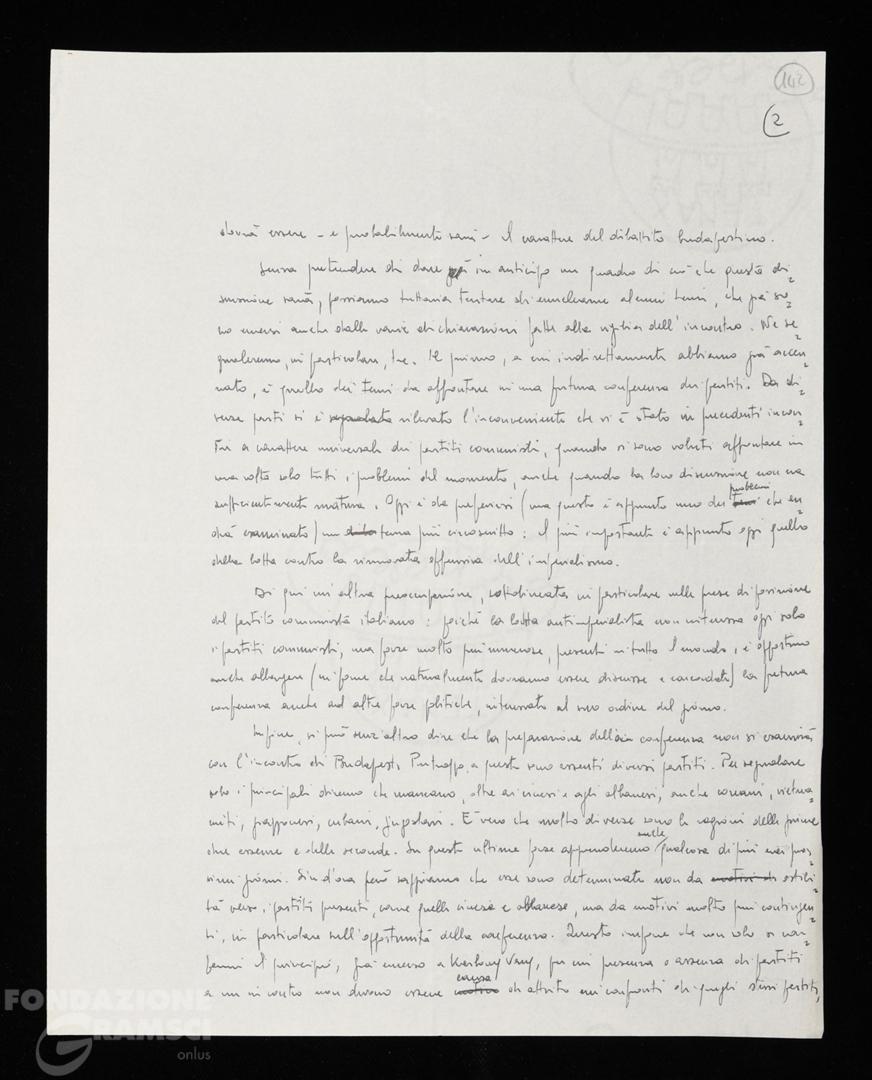 142
2
dovrà essere – e probabilmente sarà – il carattere del dibattito budapestino.
Senza pretendere di dare già in anticipo un quadro di ciò che questa di=
scussione sarà, possiamo tuttavia tentare di enuclearne alcuni temi, che già so=
no emersi anche dalle varie dichiarazioni fatte alla vigilia dell'incontro. Ne se=
gnaleremo, in particolare, tre. Il primo, a cui indirettamente abbiamo già accen=
nato, è quello dei temi da affrontare in una futura conferenza dei partiti. Da di=
verse parti si è segnalato rilevato l'inconveniente che vi è stato in precedenti incon=
tri a carattere universale dei partiti comunisti, quando si sono voluti affrontare in
una volta sola tutti i problemi del momento, anche quando la loro discussione non era
sufficientemente matura. Oggi è da preferirsi (ma questo è appunto uno dei temi problemi che an=
drà esaminato) un tema più circoscritto: il più importante è appunto oggi quello
della lotta contro la rinnovata offensiva dell'imperialismo.
Di qui un'altra preoccupazione, sottolineata in particolare nelle prese di posizione
del partito comunista italiano: poiché la lotta antimperialista non interessa oggi solo
i partiti comunisti, ma forze molto più numerose, presenti in tutto il mondo, è opportuno
anche allargare (in forme che naturalmente dovranno essere discusse e concordate) la futura
conferenza anche ad altre forze politiche, interessate al suo ordine del giorno.
Infine, si può senz'altro dire che la preparazione della conferenza non si esaurirà
con l'incontro di Budapest. Purtroppo, a questo sono assenti diversi partiti. Per segnalare
solo i principali diremo che mancano, oltre ai cinesi e agli albanesi, anche coreani, vietna=
miti, giapponesi, cubani, jugoslavi. È vero che molto diverse sono le ragioni delle prime
due assenze e delle seconde. Su queste ultime forse apprenderemo anche qualcosa di più nei pros=
simi giorni. Sin d'ora però sappiamo che esse sono determinate non da motivi di ostili=
tà verso i partiti presenti, come quelle cinese e albanese, ma da motivi molto più contingen=
ti, in particolare sull'opportunità della conferenza. Questo impone che non solo si con=
fermi il principio, già emerso a Karlovy Vary, per cui presenza o assenza di partiti
a un incontro non devono essere motivo causa di attrito nei confronti di quegli stessi partiti,
FONDAZIONE
GRAMSCI
onlus